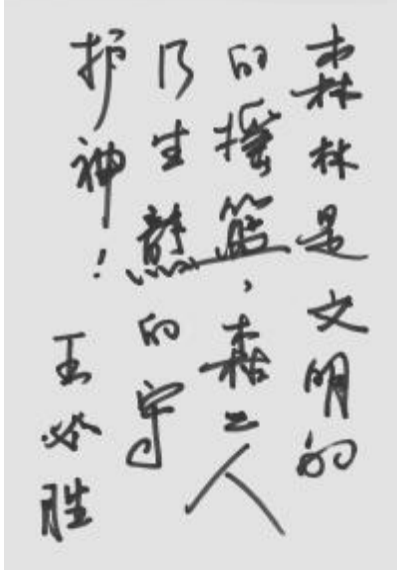 森林是文明的
的摇篮，森工人
乃生態的守
护神！
王必胜